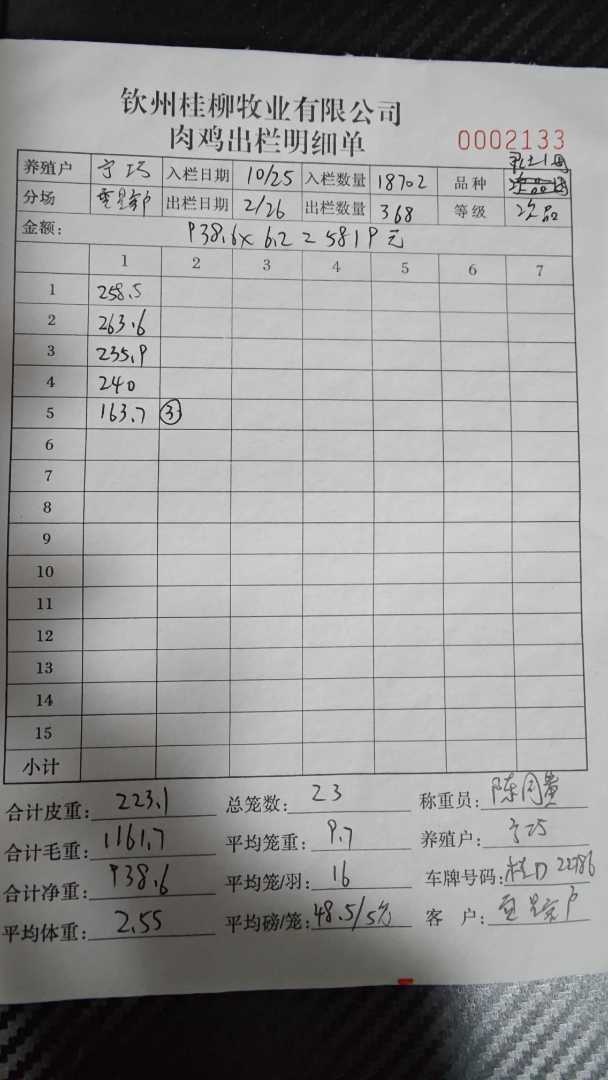 钦州桂柳牧业有限公司
肉鸡出栏明细单
0002133
养殖户 宁巧 入栏日期 10/25 入栏数量 18702 品种
分场 出栏日期 2/26 出栏数量 368 等级 次品
金额: 938.6×6.2=5819元
1 2 3 4 5 6 7
1 258.5
2 263.6
3 235.9
4 240
5 163.7 ③
6
7
8
9
10
11
12
13
14
15
小计
合计皮重: 223.1 总笼数: 23 称重员:
合计毛重: 1161.7 平均笼重: 9.7 养殖户: 宁巧
合计净重: 938.6 平均笼/羽: 16 车牌号码: 桂D 22786
平均体重: 2.55 平均磅/笼: 48.5/5 客户: